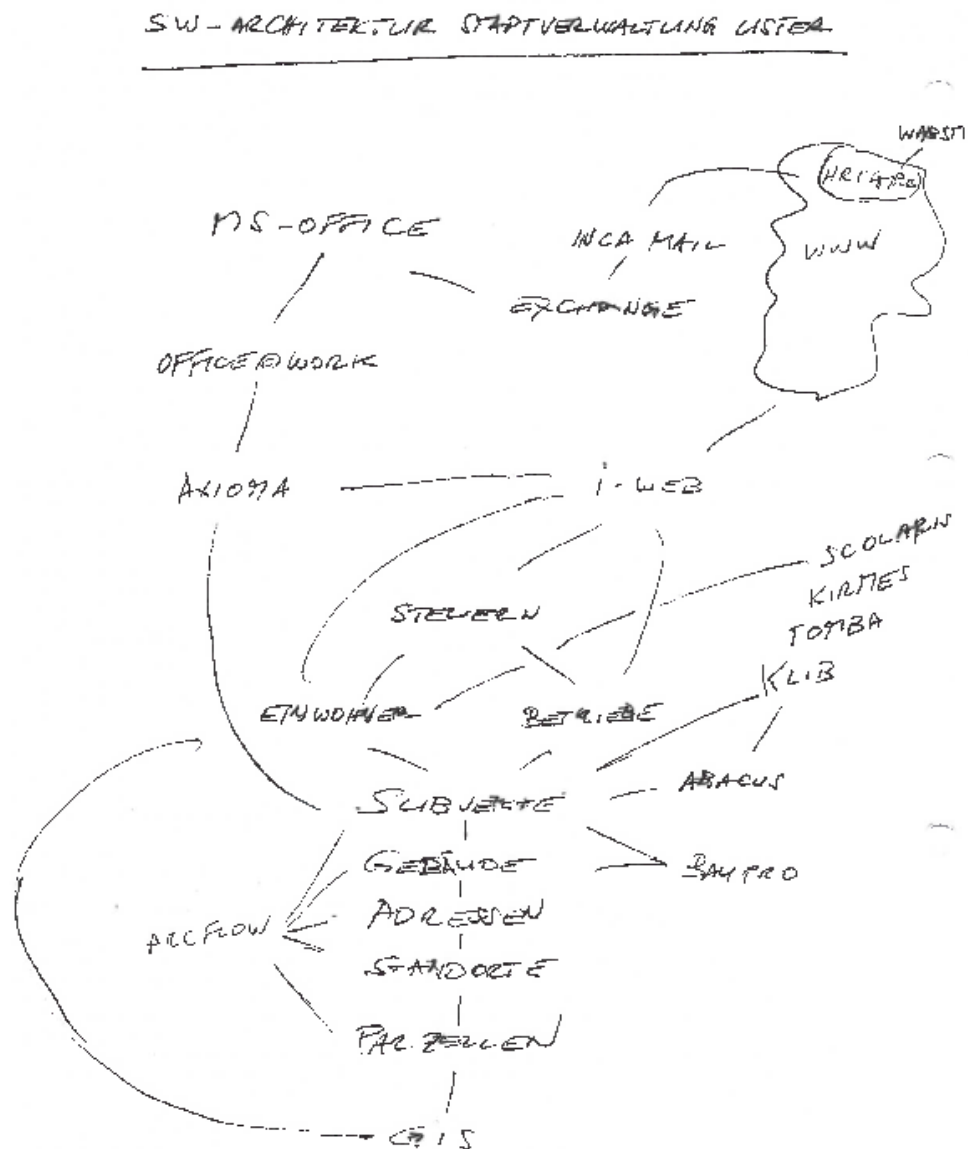 SW-ARCHITEKTUR STADTVERWALTUNG USTER
WABSTI
MS-OFFICE
INCA MAIL
WWW
EXCHANGE
OFFICE@WORK
AXIOMA
i-WEB
SCOLARIS
KIRMES
TOMBA
KLIB
STEUERN
EINWOHNER
BETRIEBE
ABACUS
SUBJEKTE
GEBÄUDE
BAUPRO
ADRESSEN
ARCFLOW
STANDORTE
PARZELLEN
GIS